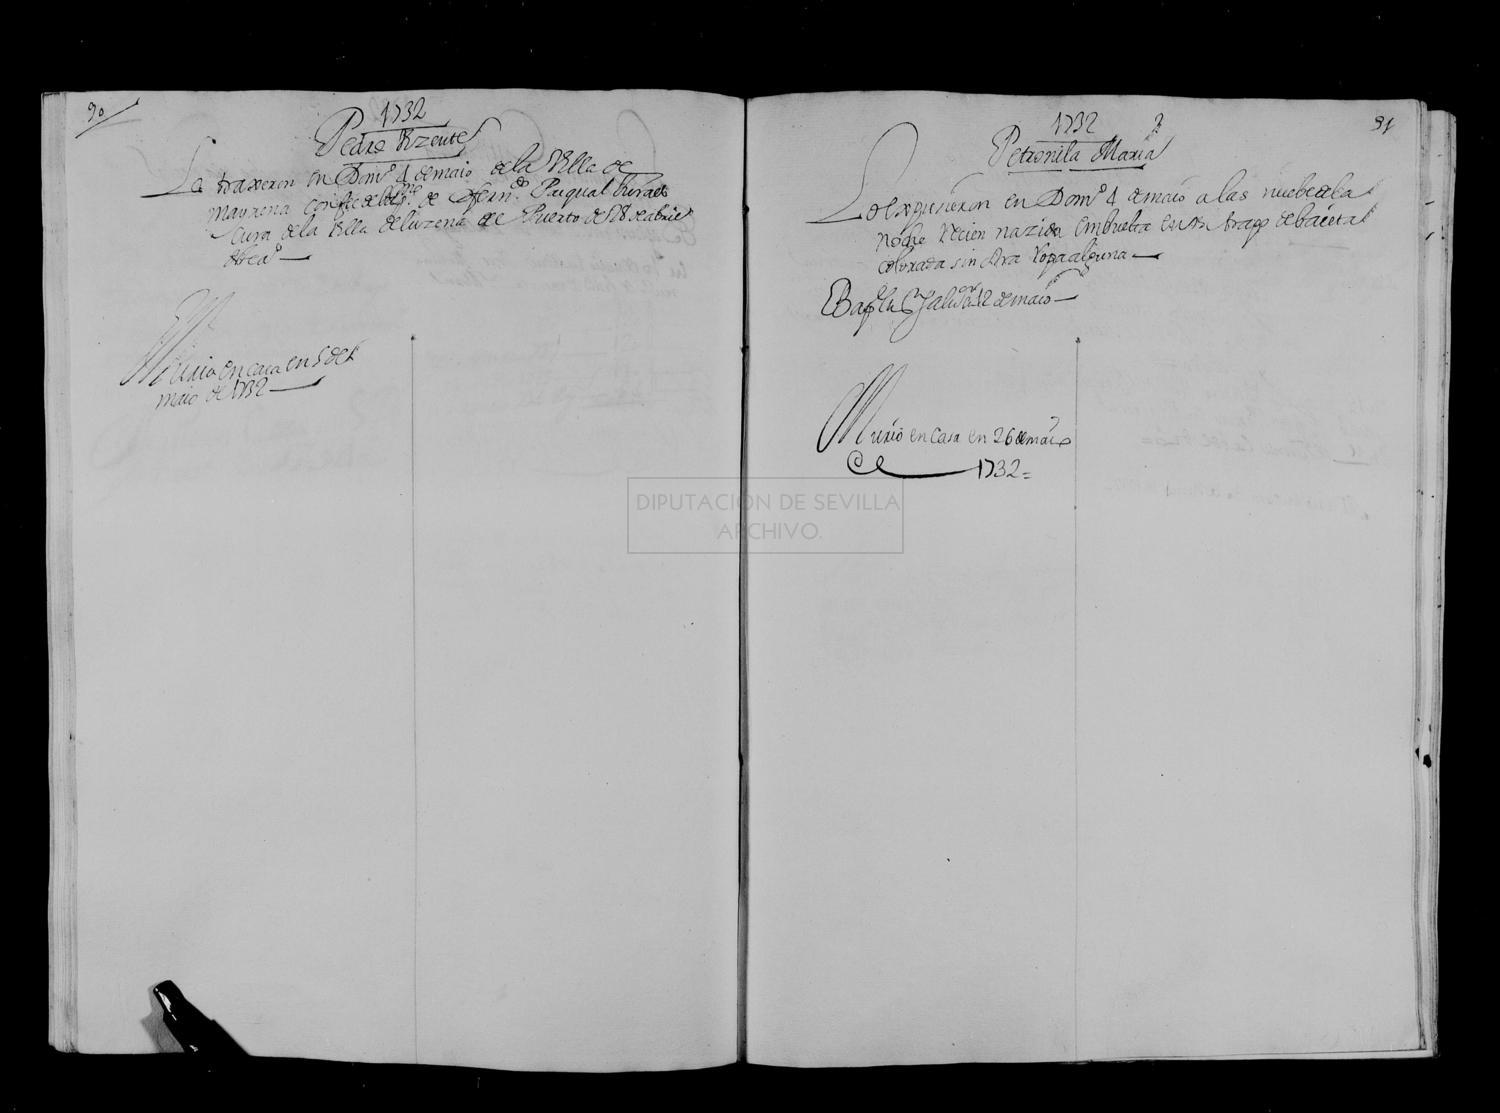 90
1732
Pedro Vizente
Le traxeron en Dom.º 4 de maio de la Villa de
Mayrena con fee de Bap.mo de D. Fern.do Pasqual
Cura de la Villa de Luzena de Puerto de 28 de abril
de
Murio en casa en 5 de
maio de 1732
1732
91
Petronila Maria
La expusieron en Dom.º 4 de maio a las nuebe de la
noche recien nazida embuelta en un trapo de baieta
colorada sin otra ropa alguna
Murio en casa en 26 de maio
de 1732=
DIPUTACIÓN DE SEVILLA
ARCHIVO.